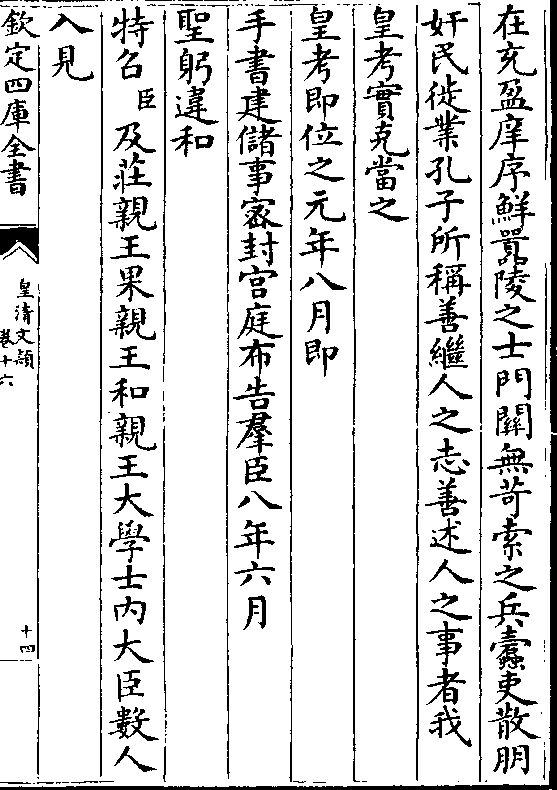 在充盈庠序鮮囂陵之士門關無苛索之兵蠧吏散朋
奸民徙業孔子所稱善繼人之志善述人之事者我
皇考實克當之
皇考即位之元年八月即
手書建儲事宻封宫庭布告羣臣八年六月
聖躬違和
特召臣及莊親王果親王和親王大學士内大臣數人
入見
欽定四庫全書
皇清文穎
卷十六
十四